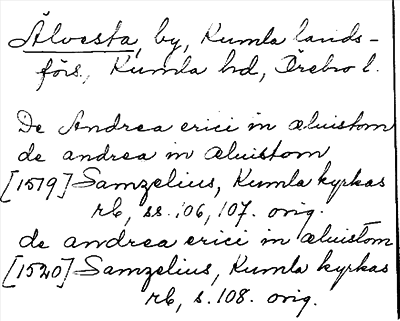 Älvesta, by, Kumla lands-
förs., Kumla hd, Örebro l.
De Andrea erici in æluistom
de andrea in æluistom
[1519] Samzelius, Kumla kyrkas
rb, ss. 106, 107. orig.
de andrea erici in æluistom
[1520] Samzelius, Kumla kyrkas
rb, s. 108. orig.